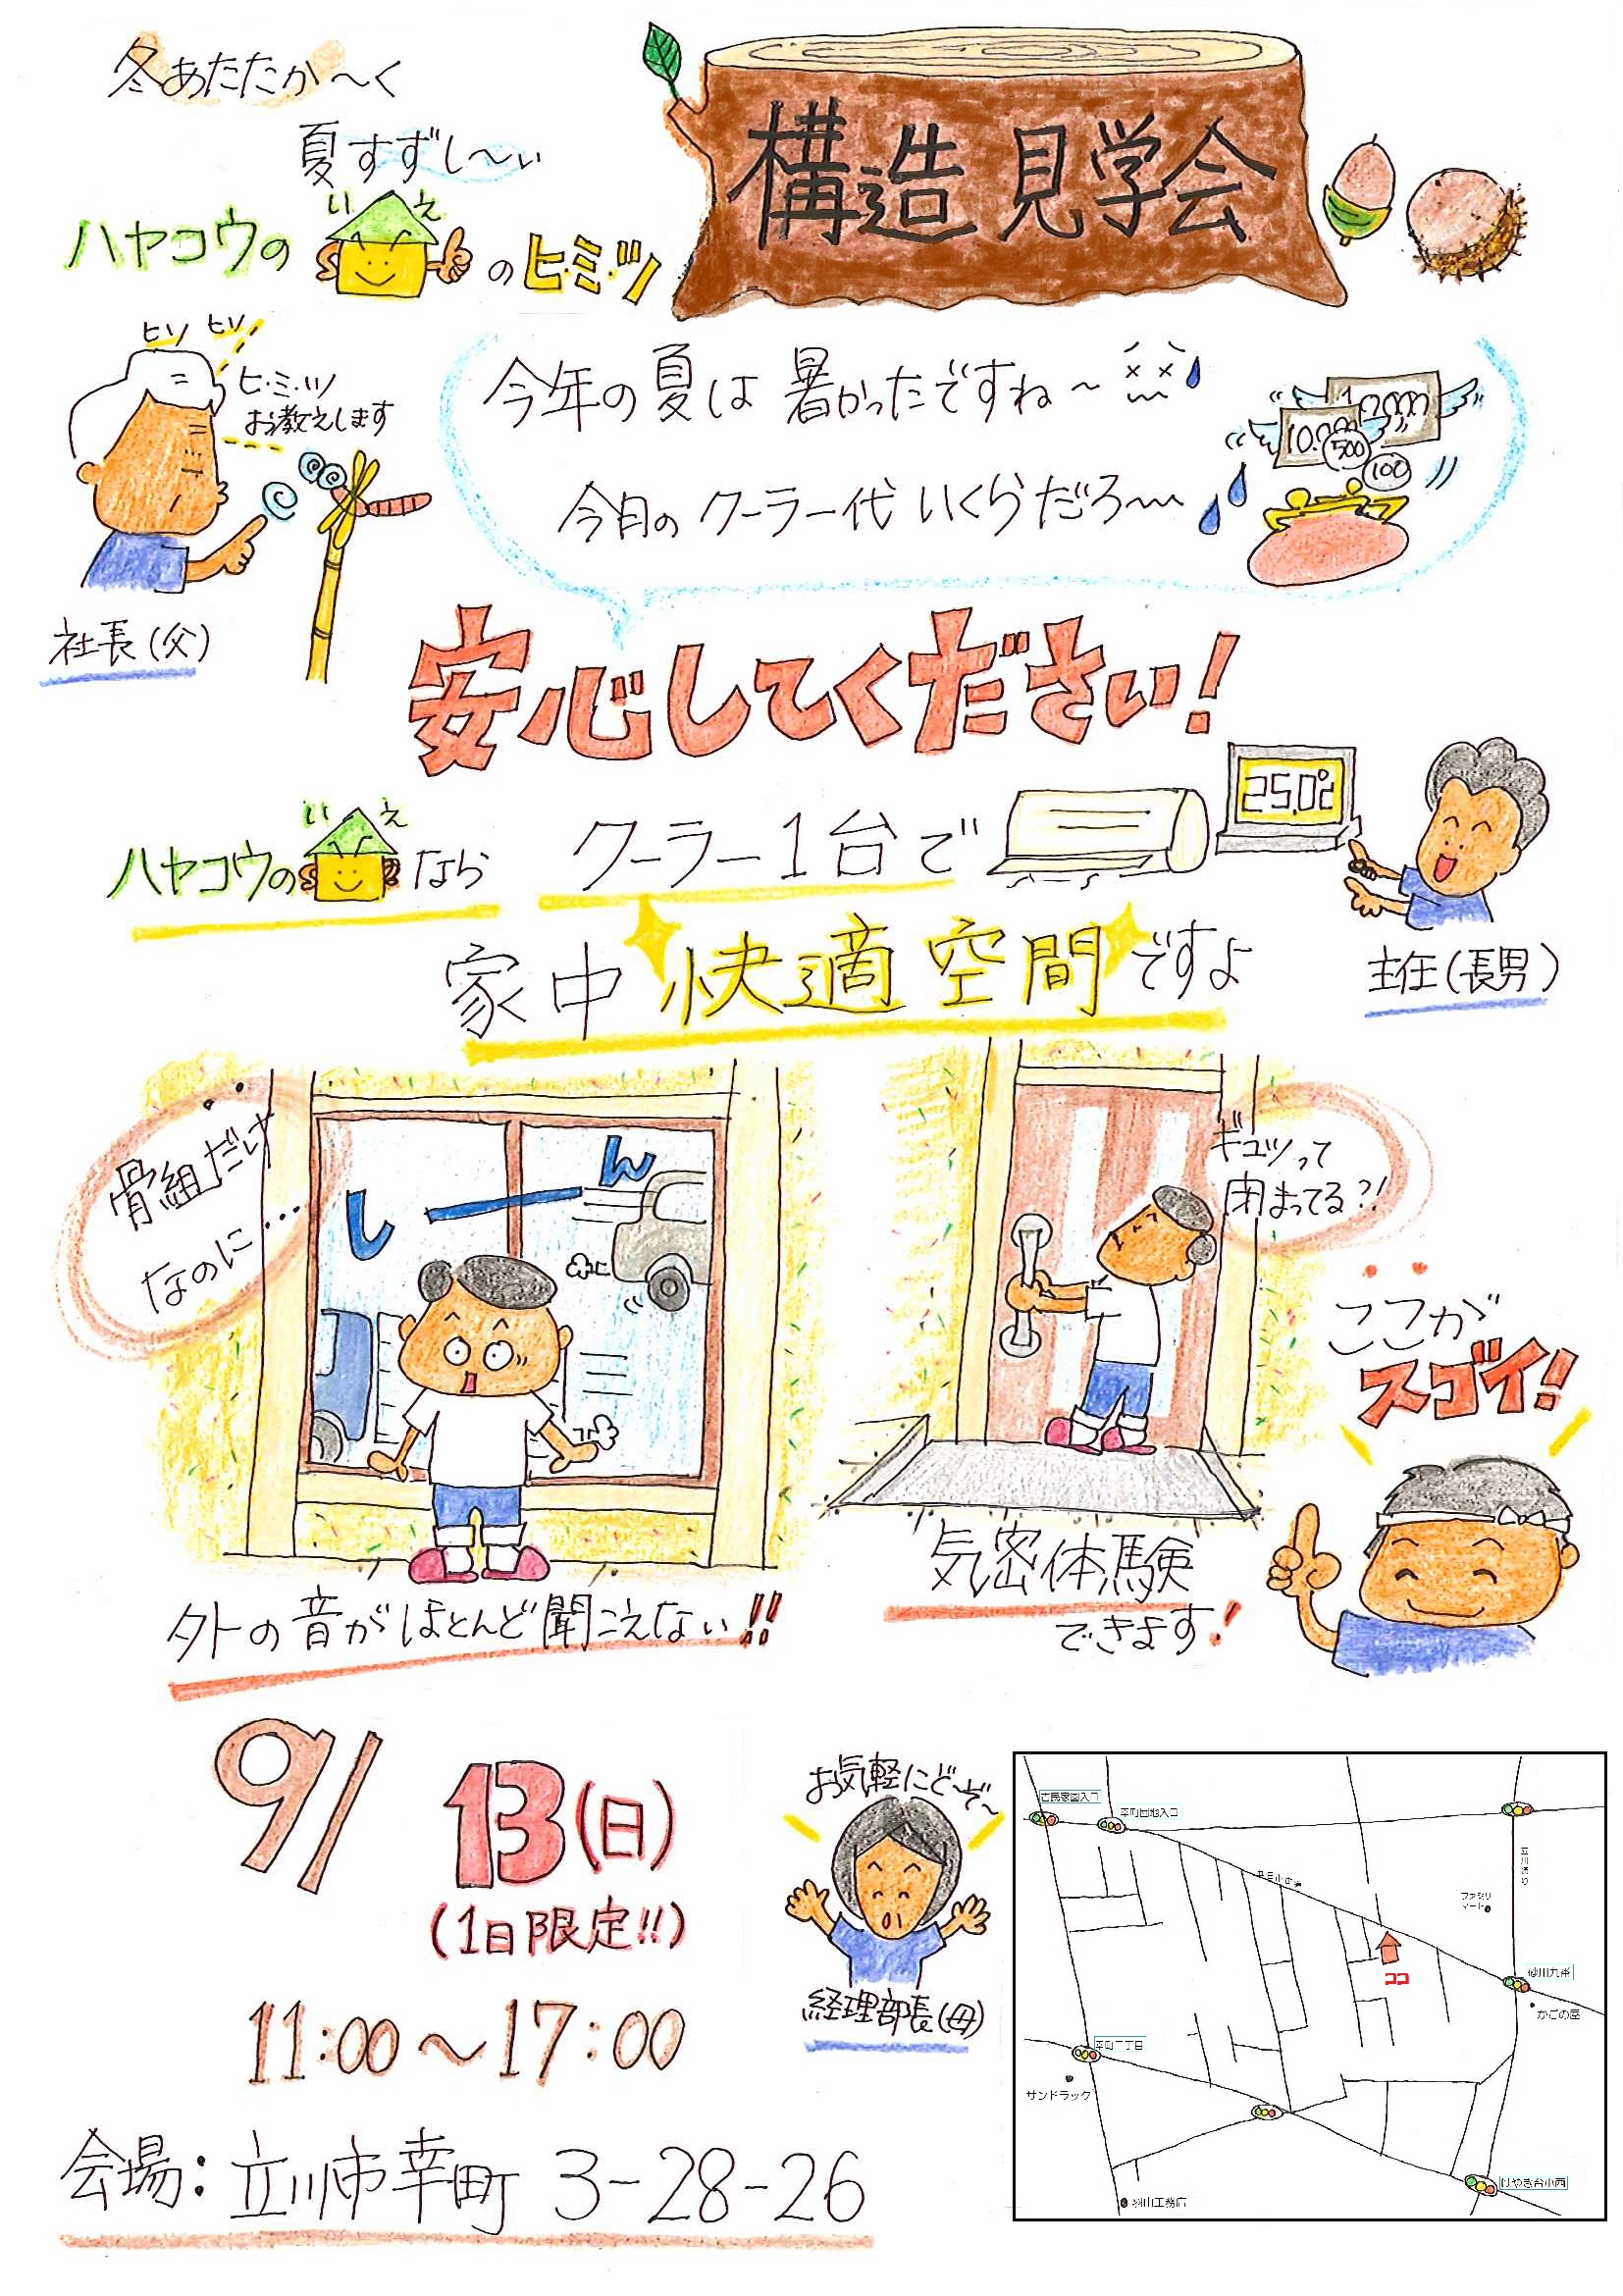 冬あたたか～く
夏すずし～い
いえ
ハヤコウの のヒ・ミ・ツ
構造見学会
ヒソヒソ
ヒ・ミ・ツ
お教えします
社長(父)
今年の夏は暑かったですね～
今月のクーラー代いくらだろ～
10,000
500
100
安心してください!
いえ
ハヤコウの なら クーラー1台で
25.0℃
家中 快適空間ですよ
主任(長男)
骨組だけ
なのに…
しーん
ギュッって
閉まってる?!
ここが
スゴイ!
外の音がほとんど聞こえない!!
気密体験
できます!
9/13(日)
(1日限定!!)
11:00～17:00
お気軽にど～ぞ～
経理部長(母)
会場:立川市幸町 3-28-26
古民家園入口
幸町団地入口
立川通り
ファミリーマート
ココ
砂川九番
かごの屋
幸町二丁目
サンドラック
けやき台小西